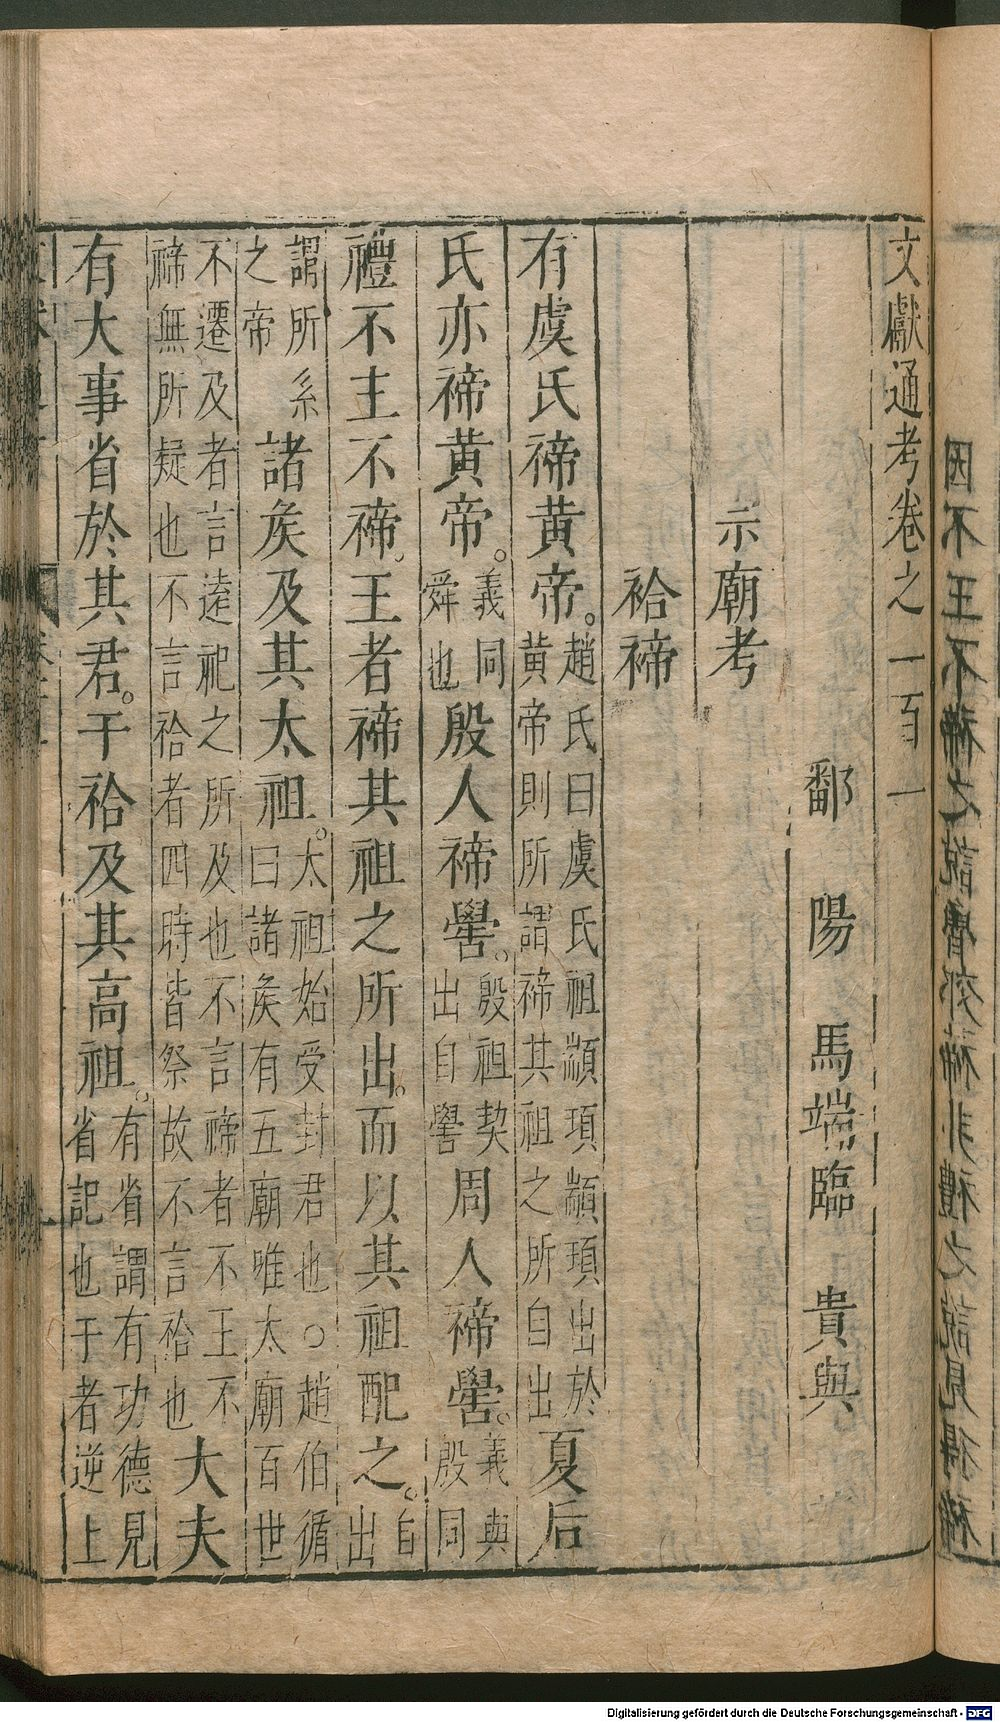 文獻通考卷之一百一
鄱陽馬端臨貴與
示廟考
祫禘
有虞氏禘黃帝。趙氏曰虞氏祖顓頊顓頊出於黃帝則所謂禘其祖之所自出夏后
氏亦禘黃帝。義同舜也殷人禘嚳。殷祖契出自嚳周人禘嚳。義與殷同
禮不主不禘。王者禘其祖之所出。而以其祖配之。自出
謂所系之帝諸矦及其太祖。太祖始受封君也○趙伯循曰諸矦有五廟唯太廟百世
不遷及者言遠祀之所及也不言禘者不王不禘無所疑也不言祫者四時皆祭故不言祫也大夫
有大事省於其君。干祫及其高祖。有省謂有功德見省記也于者逆上
Digitalisierung gefördert durch die Deutsche Forschungsgemeinschaft - DFG